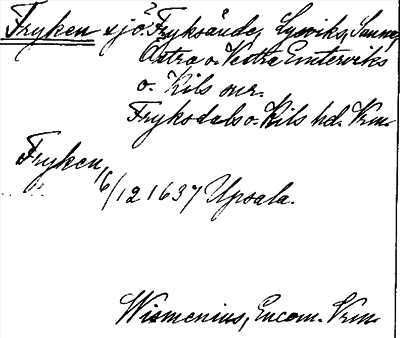 Fryken sjö? Fryksände, Lysviks, Sunne,
Östra o. Vestra Emterviks
o. Kils snr.
Fryksdals o. Kils hd. Vrm.
Fryken,
16/12 1637 Upsala.
Wismenius, Encom. Vrm.